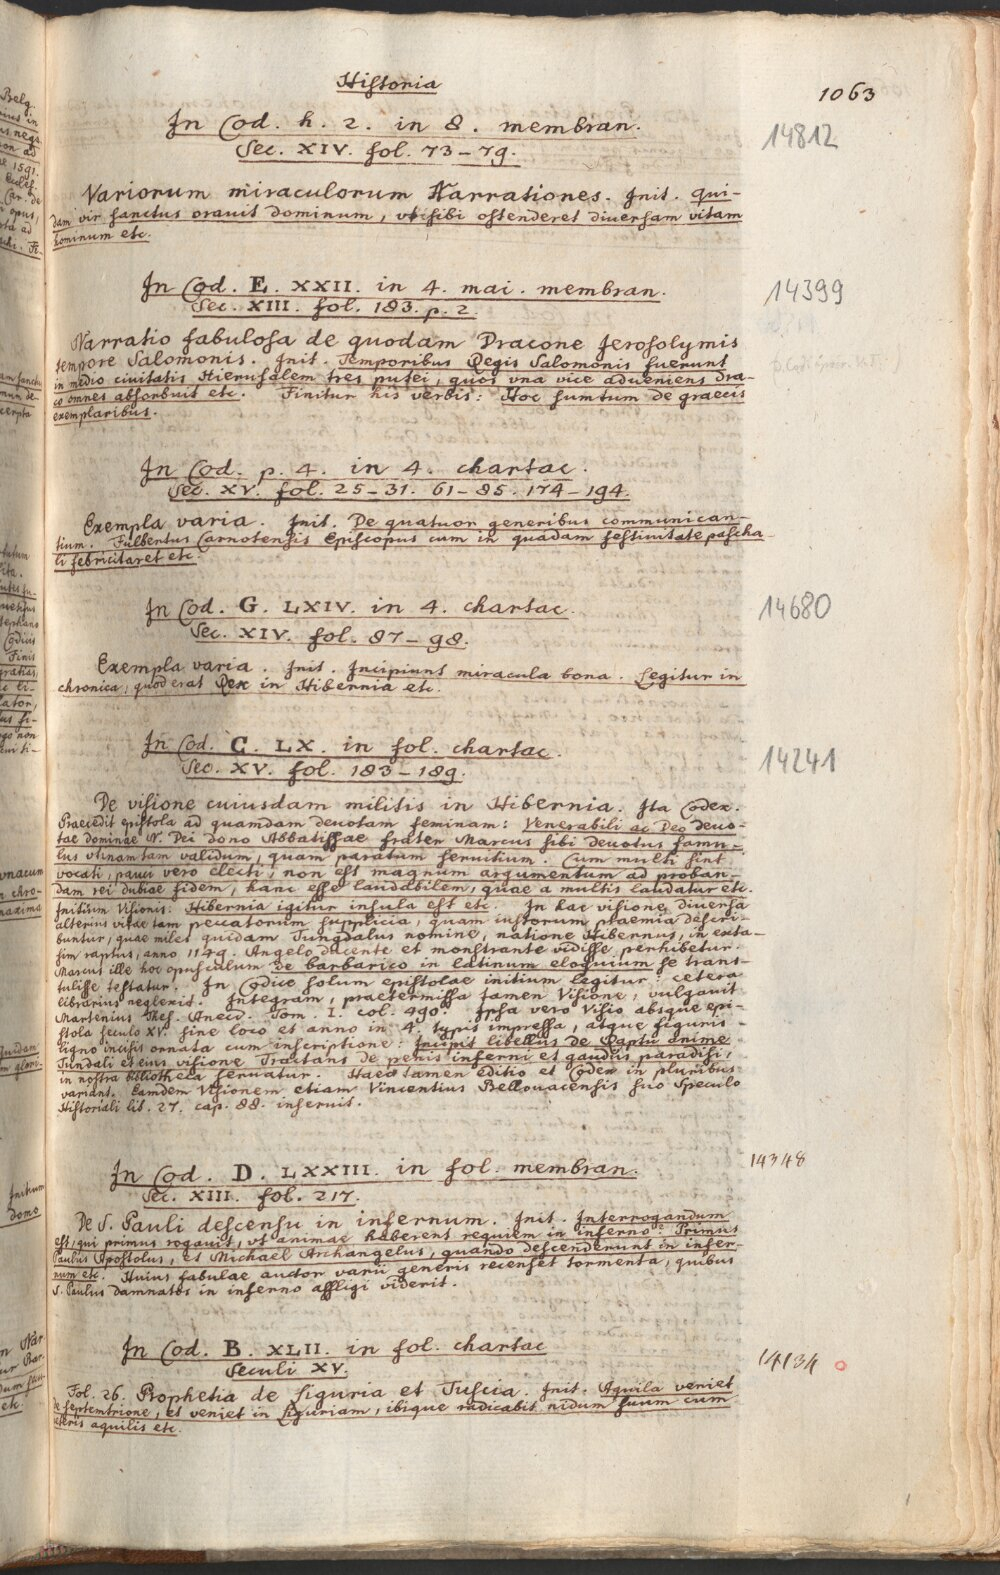 Historia
1063
In Cod. h. 2. in 8. membran.
14812
Sec. XIV. fol. 73-79.
Variorum miraculorum Narrationes. Init. Qui-
dam vir sanctus orauit dominum, vt sibi ostenderet diuersam vitam
hominum etc.
In Cod. E. XXII. in 4. mai. membran.
14399
Sec. XIII. fol. 183. p. 2.
Narratio fabulosa de quodam Dracone Jerosolymis
tempore Salomonis. Init. Temporibus Regis Salomonis fuerunt
in medio ciuitatis Hierusalem tres putei, quos vna vice adueniens dra-
co omnes absorbuit etc. Finitur his verbis: Hoc sumtum de graecis
exemplaribus.
In Cod. p. 4. in 4. chartac.
Sec. XV. fol. 25-31. 61-85. 174-194.
Exempla varia. Init. De quatuor generibus communican-
tium. Fulbertus Carnotensis Episcopus cum in quadam festiuitate pascha-
li febricitaret etc.
In Cod. G. LXIV. in 4. chartac.
14680
Sec. XIV. fol. 87-98.
Exempla varia. Init. Incipiunt miracula bona. Legitur in
chronica, quod erat Rex in Hibernia etc.
In Cod. C. LX. in fol. chartac.
14241
Sec. XV. fol. 183-189.
De visione cuiusdam militis in Hibernia. Ita Codex.
Praecedit epistola ad quamdam deuotam feminam: Venerabili ac Deo deuo-
tae dominae N. Dei dono Abbatissae frater Marcus sibi deuotus famu-
lus vtinam tam validum, quam paratum seruitium. Cum multi sint
vocati, pauci vero electi, non est magnum argumentum ad proban-
dam rei dubiae fidem, hanc esse laudabilem, quae a multis laudatur etc.
Initium Visionis: Hibernia igitur insula est etc. In hac visione diuersa
alterius vitae tam peccatorum supplicia, quam iustorum praemia descri-
buntur, quae miles quidam Tungdalus nomine, natione Hibernus, in exta-
sim raptus, anno 1149. Angelo ducente et monstrante vidisse perhibetur.
Marcus ille hoc opusculum de barbarico in latinum eloquium se trans-
tulisse testatur. In Codice solum epistolae initium legitur: cetera
librarius neglexit. Integram, praetermissa tamen Visione, vulgauit
Martenius Thes. Anecd. Tom. I. col. 490. Ipsa vero Visio absque epi-
stola seculo XV. sine loco et anno in 4. typis impressa, atque figuris
ligno incisis ornata cum inscriptione: Incipit libellus de Raptu anime
Tundali et eius visione Tractans de penis inferni et gaudiis paradisi,
in nostra bibliotheca seruatur. Haec tamen editio et Codex in pluribus
variant. Eamdem Visionem etiam Vincentius Bellouacensis suo Speculo
Historiali lib. 27. cap. 88. inseruit.
In Cod. D. LXXIII. in fol. membran.
14348
Sec. XIII. fol. 217.
De S. Pauli descensu in infernum. Init. Interrogandum
est, qui primus rogauit, vt animae haberent requiem in inferno? Primus
Paulus Apostolus, et Michael Archangelus, quando descenderunt in infer-
num etc. Huius fabulae auctor varii generis recenset tormenta, quibus
S. Paulus damnatos in inferno affligi viderit.
In Cod. B. XLII. in fol. chartac
14134
Seculi XV.
Fol. 26. Prophetia de Liguria et Tuscia. Init. Aquila veniet
de septemtrione, et veniet in Liguriam, ibique radicabit nidum suum cum
ceteris aquilis etc.